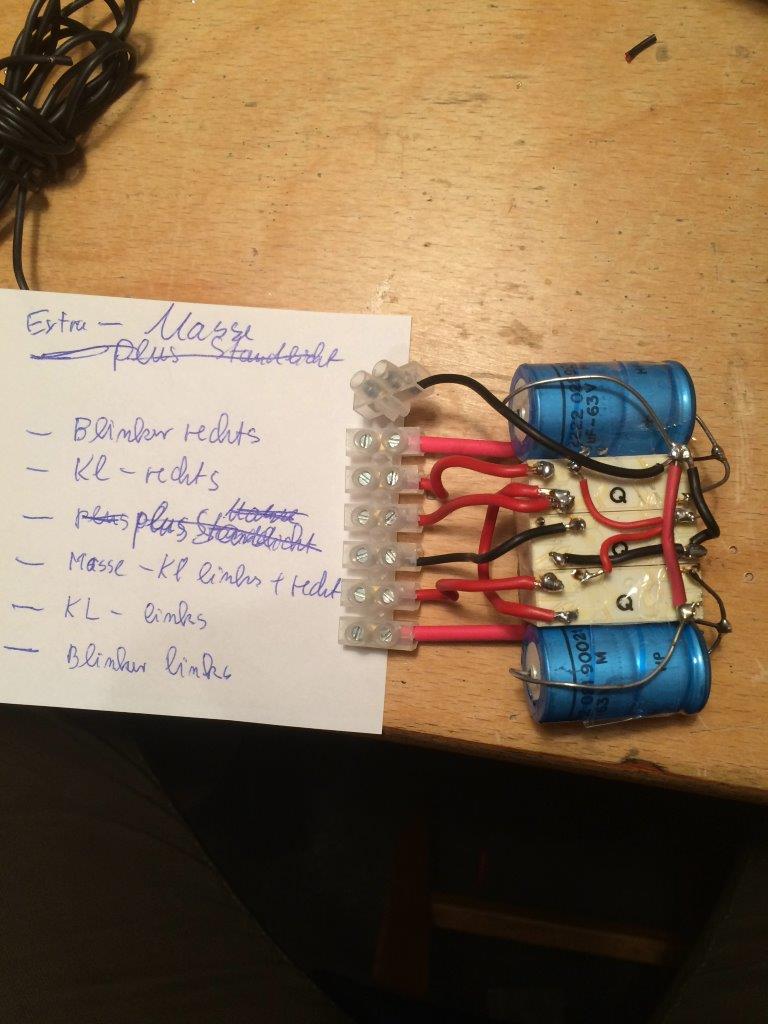 Extra - Masse
plus Standlicht
- Blinker rechts
- Kl - rechts
- plus plus Standlicht
- Masse - Kl links + recht
- KL - links
- Blinker links
2222 02
µF-63V
Q
Q
Q
90021
M
63